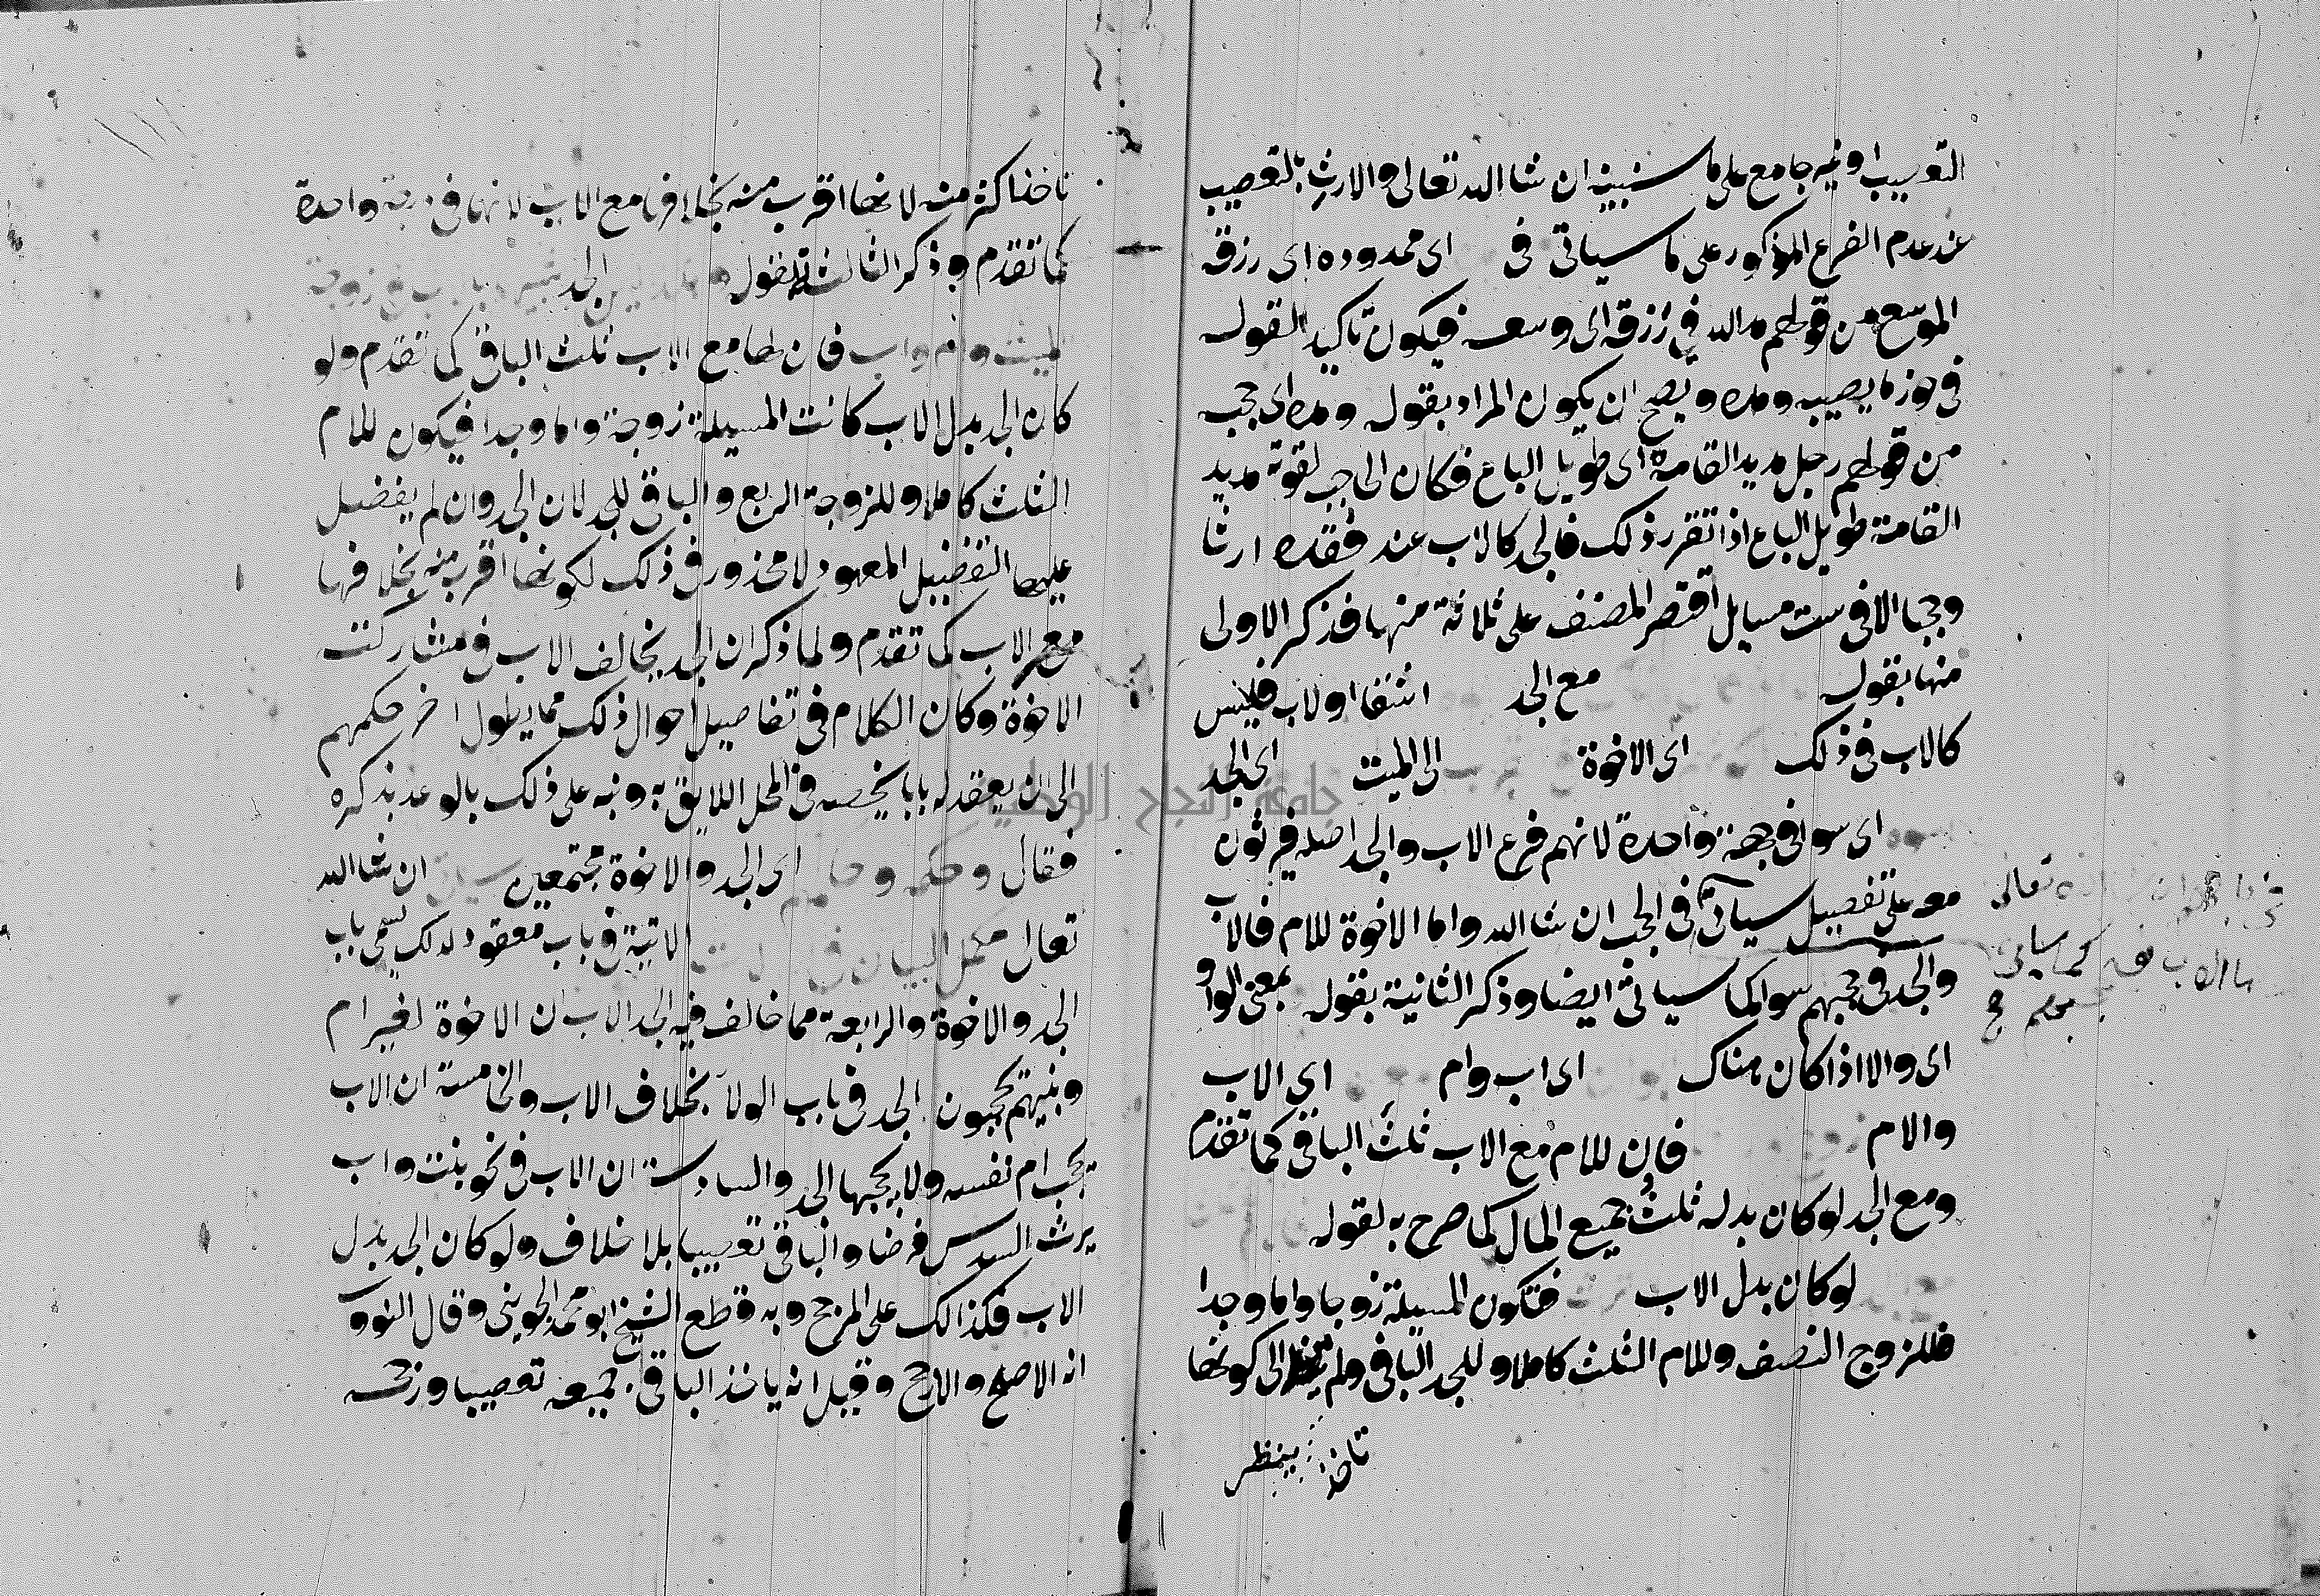 التعصيب او فيه جامع على ما سنبينه ان شا الله تعالى والارث بالتعصيب
عند عدم الفرع المذكور على ما سياتي في اى ممدوده اى رزقه
الموسع من قولهم مد الله في رزقه اى وسعه فيكون تاكيدا لقوله
في حوز ما يصيبه ومده ويصح ان يكون المراد بقوله ومده اى حجبه
من قولهم رجل مديد القامة اى طويل الباع فكان الحاجب لقوته مديد
القامة طويل الباع اذا تقرر ذلك فالجد كالاب عند فقده ارثا
وحجبا الا في ست مسايل اقتصر المصنف على ثلاثة منها فذكر الاولى
منها بقوله مع الجد اشقا او لاب فليس
كالاب في ذلك اى الاخوة الى الميت اى الجد
اى سوا في جهة واحدة لانهم فرع الاب والجد اصله فيرثون
معه على تفصيل سياتي في الحجب ان شا الله واما الاخوة للام فالاب
والجد في حجبهم سوا كما سياتي ايضا وذكر الثانية بقوله بمعنى الواو
اى والا اذا كان هناك اى اب وام اى الاب
والام فان للام مع الاب ثلث الباقي كما تقدم
ومع الجد لو كان بدله ثلث جميع المال كما صرح به لقوله
لو كان بدل الاب فتكون المسيلة زوجا واما وجدا
فللزوج النصف وللام الثلث كاملا وللجد الباقي ولم الى كونها
تاخذ ينظر
تعالى
كما سياتي
تاخذ اكثر منه لانها اقرب منه بخلافها مع الاب لانهما في درجة واحدة
كما تقدم وذكر الثالث بقوله الجد زوجة
الميت وام واب فان لها مع الاب ثلث الباقي كما تقدم ولو
كان الجد بدل الاب كانت المسيلة زوجة واما وجدا فيكون للام
الثلث كاملا وللزوجة الربع والباقي للجد لان الجد وان لم يفضل
عليها التفضيل المعهود لا محذور في ذلك لكونها اقرب منه بخلافها
مع الاب كما تقدم ولما ذكر ان الجد يخالف الاب في مشاركت
الاخوة وكان الكلام في تفاصيل احوال ذلك مما يطول اخر حكمهم
الى ان يعقد له بابا يخصه في المحل اللايق به ونبه على ذلك بالوعد بذكره
فقال وحكمه وحكمهم اى الجد والاخوة مجتمعين سياتي ان شا الله
تعالى مكمل البيان في الحالات الاتية في باب معقود لذلك يسمى باب
الجد والاخوة والرابعة مما خالف فيه الجد الاب ان الاخوة لغير ام
وبنيهم يحجبون الجد في باب الولا بخلاف الاب والخامسة ان الاب
يحجب ام نفسه ولا يحجبها الجد والسادسة ان الاب في نحو بنت واب
يرث السدس فرضا والباقي تعصيبا بلا خلاف ولو كان الجد بدل
الاب فكذالك على المرجح وبه قطع الشيخ ابو محمد الجويني وقال النووى
انه الاصح والارجح وقيل انه ياخذ الباقي جميعه تعصيبا ورجحه
جامعة النجاح الوطنية